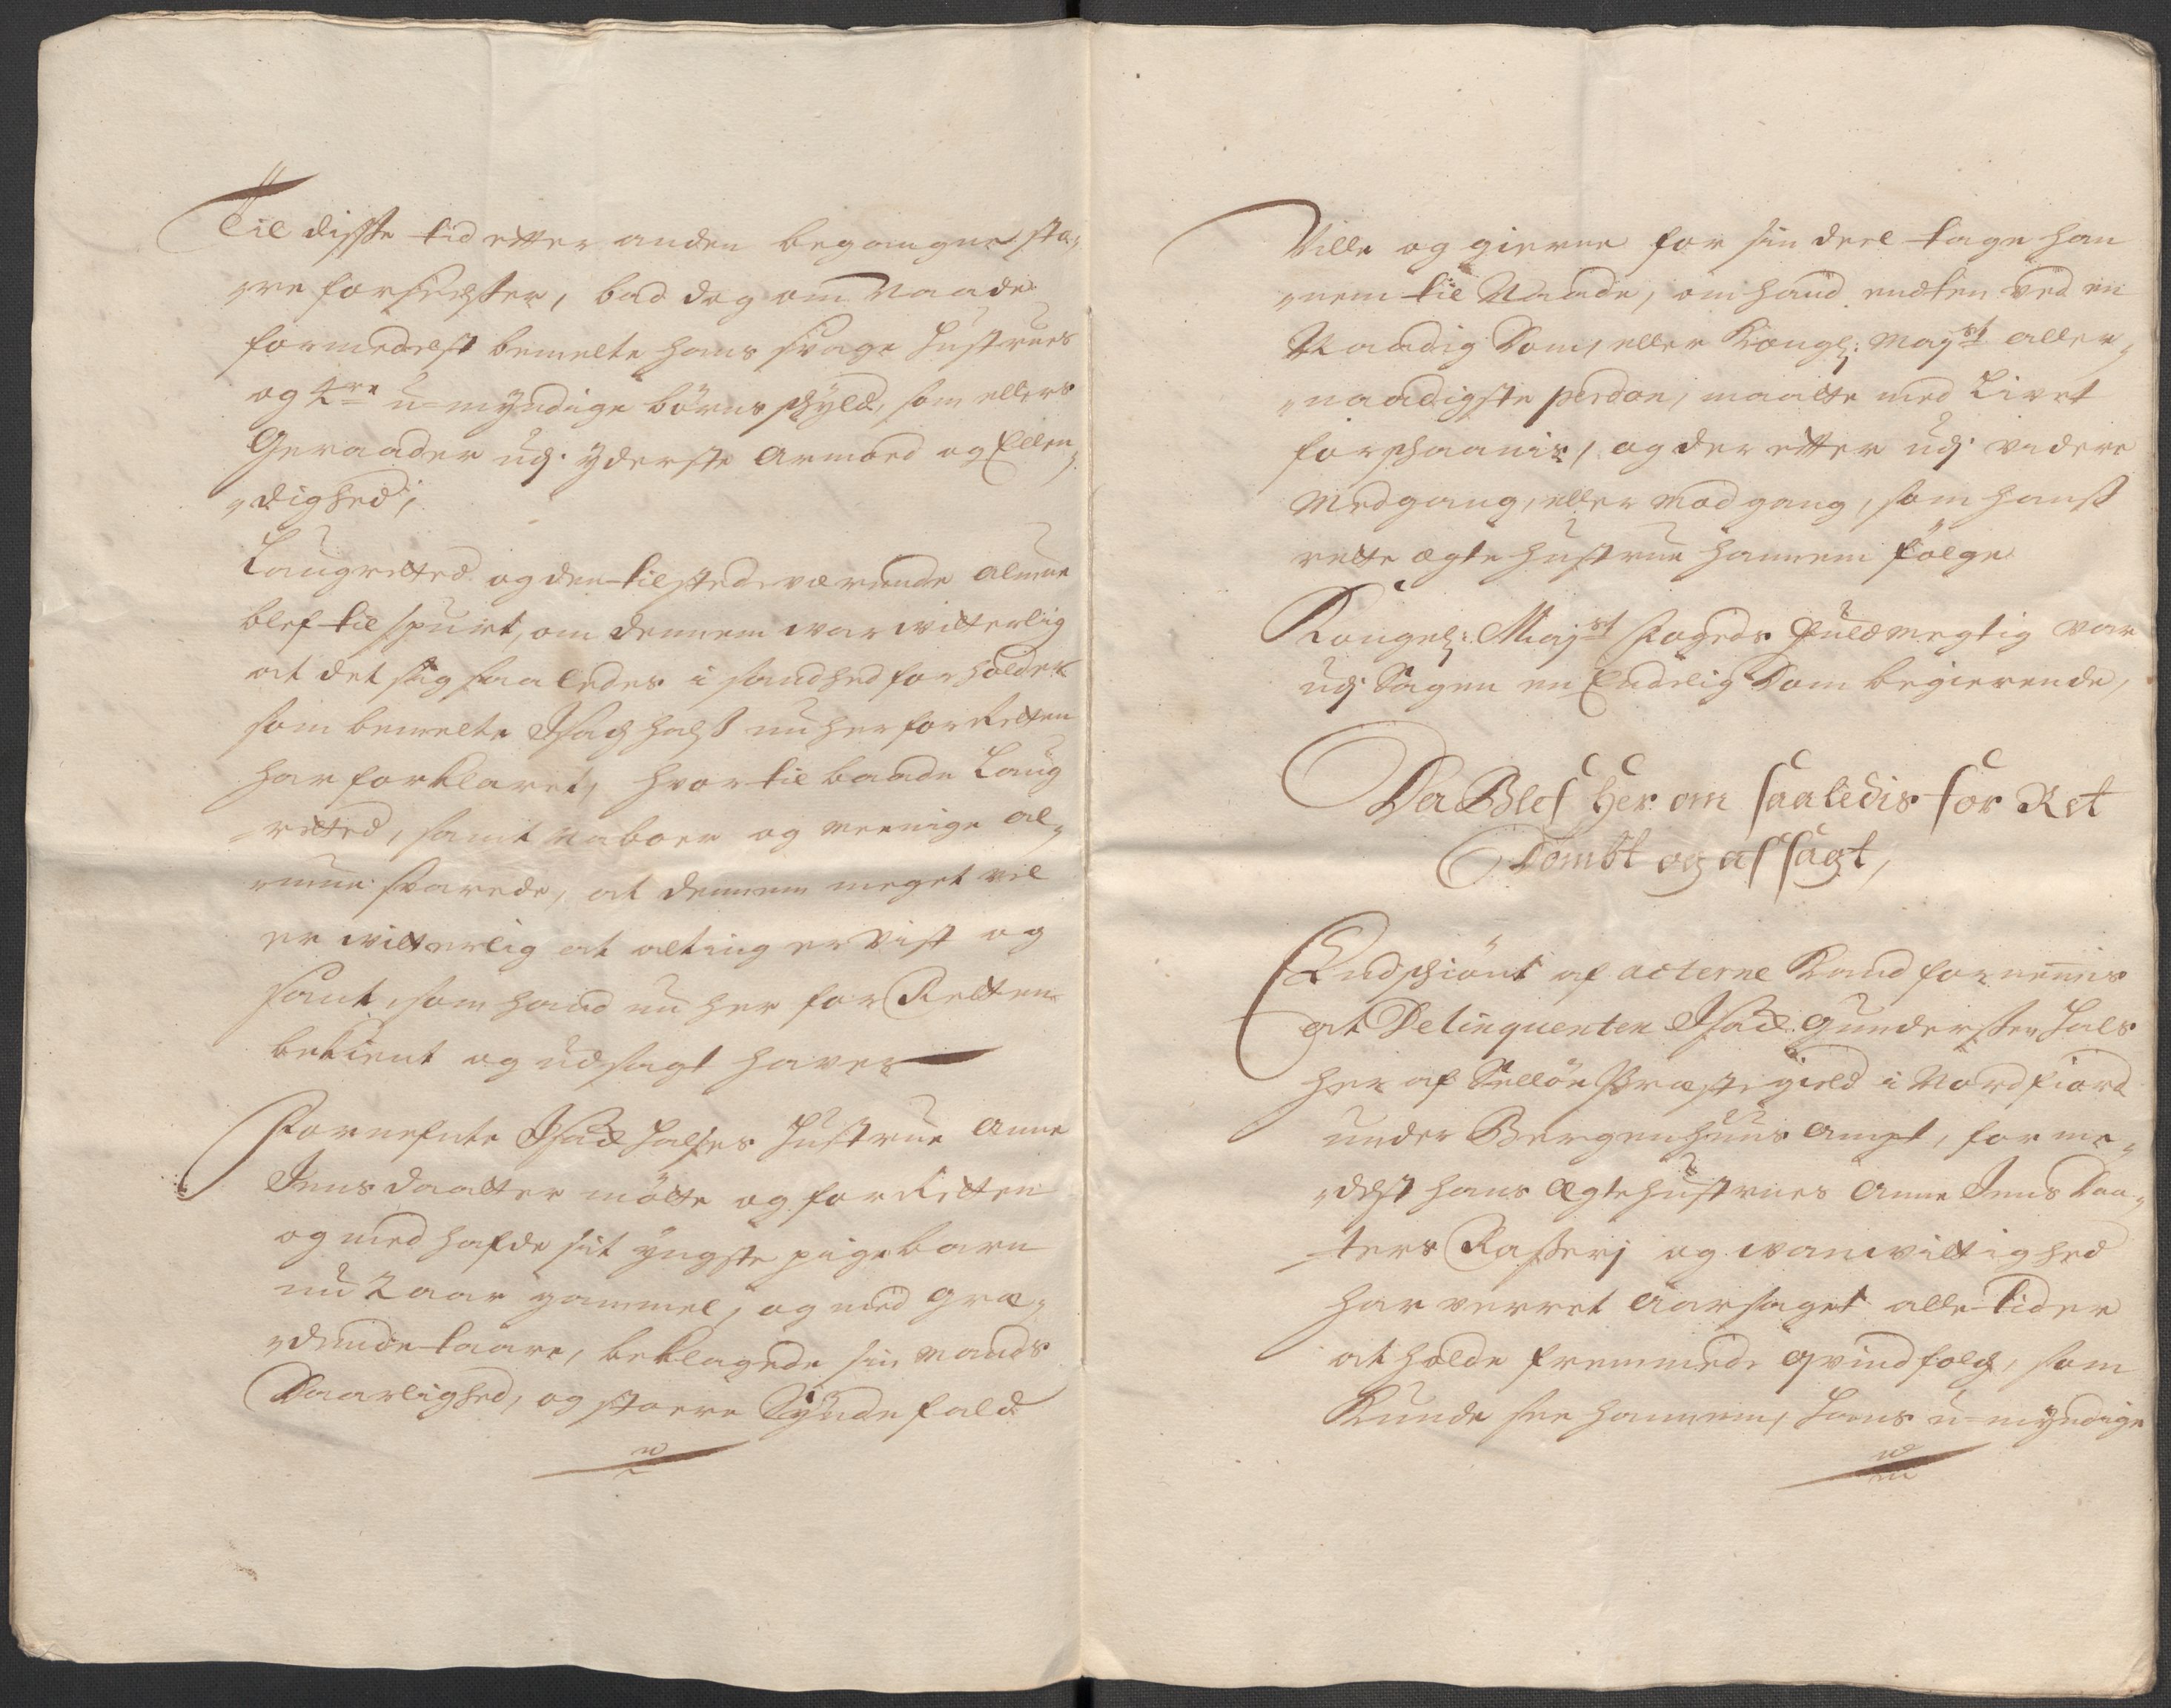 Til disse tid etter anden begangne sto-
re forseelser, bad dog om Naade
formedelst bemelte hans svage Hustrues
og 4re u-myndige børns skyld, som ellers
Geraader udj yderste armoed og Ellen-
dighed;
Laugretted og den tilstedeværende almue
blef tilspurt, om dennem war witterlig
at det sig saaledes i sandhed forholder
som bemelte Isach Hals nu her for Retten
har forklaret, hvortil baade Laug
retted, samt naboer og meenige al-
mue svarede, at dennem meget vel
er witterlig at alting er vist og
sant, som hand nu her for Retten
bekient og udsagt haver
Fornefnte Isach Halses Hustrue Anne
Jens daatter mötte og for Retten
og med hafde sit yngste pigebarn
nu 2 aar gammel, og med græ-
dende taare, beklagede sin mands
Daarlighed, og stoere Syndefald
Ville og gierne for sin deel tage han
nem til Naade, om hand endten ved en
Naadig Dom, eller Kongl: Majst aller-
naadigste perdon, maatte med Livet
forschaanis, og der etter udj videre
Medgang, eller modgang, som hans
rette ægte hustrue hannem fölge
Kongel: Majst Fogeds Fuldmegtig var
udj Sagen en Endelig Dom begierende,
Da Blef her om saaledis for Ret
Dombt og afsagt,
Endschiönt af acterne Kand fornemis
at Delinquenten Isach Gundersen Hals
her af Selløe Præstegield i Nordfiord
under Bergenhuus ampt, forme-
delst hans Ægtehustrues Anne Jens Daa-
ters Raserj og wanwittighed
har verret aarsaget alle tider
at holde fremmede qvindfolch, som
Kunde see hannem, Hans u-myndige